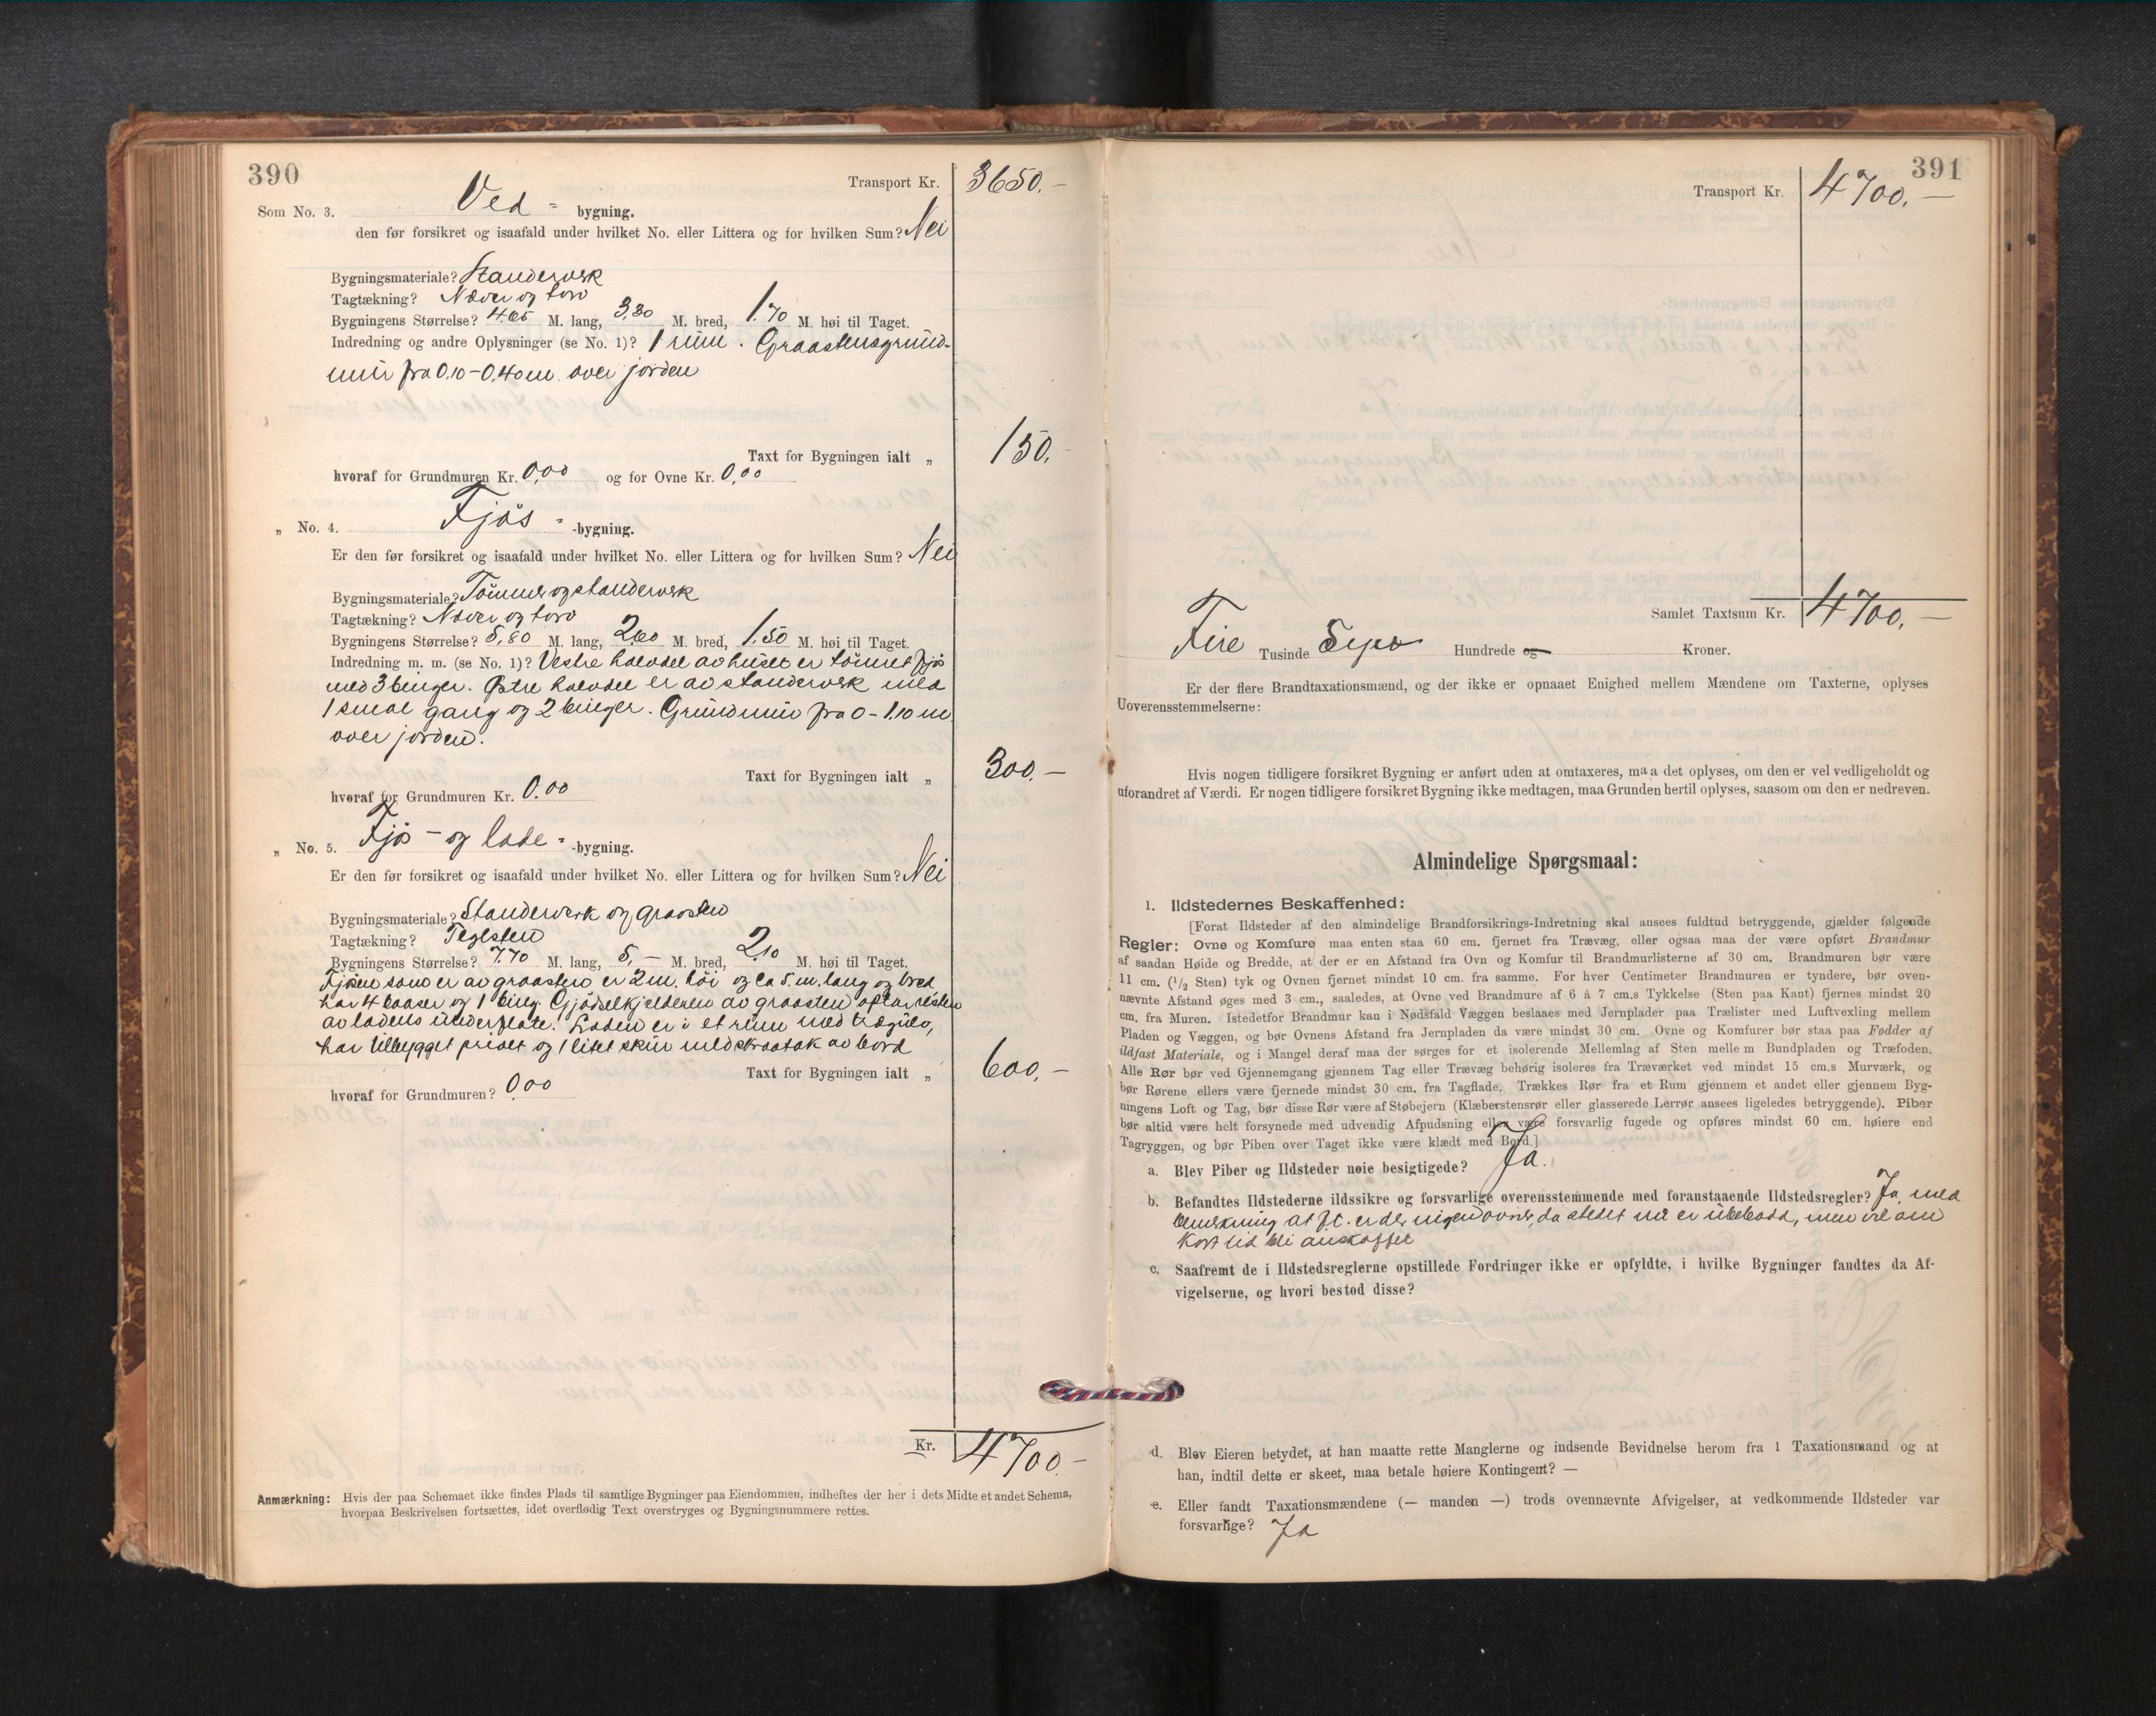 390
Transport Kr. 3650.-
Som No. 3. Ved - bygning.
den før forsikret og isaafald under hvilket No. eller Littera og for hvilken Sum? Nei
Bygningsmateriale? Standerverk
Tagtækning? Næver og torv
Bygningens Størrelse? 4.65 M. lang, 3,30 M. bred, 1.70 M. høi til Taget.
Indredning og andre Oplysninger (se No. 1)? 1 rum. Graastensgrund-
mur fra 0,10-0,40 m. over jorden
Taxt for Bygningen ialt „ 150.
hvoraf for Grundmuren Kr. 0,00 og for Ovne Kr. 0,00
„ No. 4. Fjös - -bygning.
Er den før forsikret og isaafald under hvilket No. eller Littera og for hvilken Sum? Nei
Bygningsmateriale? Tömmer og standerverk
Tagtækning? Næver og torv
Bygningens Størrelse? 5,80 M. lang, 2,60 M. bred, 1.50 M. høi til Taget.
Indredning m. m. (se No. 1)? Vestre halvdel av huset er tömret fjös
med 3 binger. Østre halvdel er av standerverk med
1 smal gang og 2 binger. Grundmur fra 0-1.10 m
over jorden.
Taxt for Bygningen ialt „ 300.-
hvoraf for Grundmuren Kr. 0.00
„ No. 5. Fjös - og lade - -bygning.
Er den før forsikret og isaafald under hvilket No. eller Littera og for hvilken Sum? Nei
Bygningsmateriale? Standerverk og graasten
Tagtækning? Teglsten
Bygningens Størrelse? 7.70 M. lang, 5,- M. bred, 2,10 M. høi til Taget.
Fjösen som er av graasten er 2 m. höi og ca 5 m. lang og bred
har 4 baaser og 1 bing. Gjödselkjelderen av graasten optar resten
av ladens underflate. Laden er i et rum med trægulv,
har tilbygget privet og 1 litet skur med skraatak av bord
Taxt for Bygningen ialt „ 600.-
hvoraf for Grundmuren? 0,00
Kr. 4700.-
Anmærkning: Hvis der paa Schemaet ikke findes Plads til samtlige Bygninger paa Eiendommen, indheftes der her i dets Midte et andet Schema,
hvorpaa Beskrivelsen fortsættes, idet overflødig Text overstryges og Bygningsnummere rettes.
391
Transport Kr. 4700.-
Samlet Taxtsum Kr. 4700.-
Fire Tusinde Syv Hundrede og Kroner.
Er der flere Brandtaxationsmænd, og der ikke er opnaaet Enighed mellem Mændene om Taxterne, oplyses
Uoverensstemmelserne:
Hvis nogen tidligere forsikret Bygning er anført uden at omtaxeres, maa det oplyses, om den er vel vedligeholdt og
uforandret af Værdi. Er nogen tidligere forsikret Bygning ikke medtagen, maa Grunden hertil oplyses, saasom om den er nedreven.
Almindelige Spørgsmaal:
1. Ildstedernes Beskaffenhed:
[Forat Ildsteder af den almindelige Brandforsikrings-Indretning skal ansees fuldtud betryggende, gjælder følgende
Regler: Ovne og Komfure maa enten staa 60 cm. fjernet fra Trævæg, eller ogsaa maa der være opført Brandmur
af saadan Høide og Bredde, at der er en Afstand fra Ovn og Komfur til Brandmurlisterne af 30 cm. Brandmuren bør være
11 cm. (1/2 Sten) tyk og Ovnen fjernet mindst 10 cm. fra samme. For hver Centimeter Brandmuren er tyndere, bør oven-
nævnte Afstand øges med 3 cm., saaledes, at Ovne ved Brandmure af 6 à 7 cm.s Tykkelse (Sten paa Kant) fjernes mindst 20
cm. fra Muren. Istedetfor Brandmur kan i Nødsfald Væggen beslaaes med Jernplader paa Trælister med Luftvexling mellem
Pladen og Væggen, og bør Ovnens Afstand fra Jernpladen da være mindst 30 cm. Ovne og Komfurer bør staa paa Fødder af
ildfast Materiale, og i Mangel deraf maa der sørges for et isolerende Mellemlag af Sten mellem Bundpladen og Træfoden.
Alle Rør bør ved Gjennemgang gjennem Tag eller Trævæg behørig isoleres fra Træværket ved mindst 15 cm.s Murværk, og
bør Rørene ellers være fjernede mindst 30 cm. fra Tagflade. Trækkes Rør fra et Rum gjennem et andet eller gjennem Byg-
ningens Loft og Tag, bør disse Rør være af Støbejern (Klæberstensrør eller glasserede Lerrør ansees ligeledes betryggende). Piber
bør altid være helt forsynede med udvendig Afpudsning eller være forsvarlig fugede og opføres mindst 60 cm. høiere end
Tagryggen, og bør Piben over Taget ikke være klædt med Bord.]
a. Blev Piber og Ildsteder nøie besigtigede? Ja.
b. Befandtes Ildstederne ildssikre og forsvarlige overensstemmende med foranstaaende Ildstedsregler? Ja, med
bemerkning at f.t. er der ingen ovner, da stedet nu er ubebodd, men vil om
kort tid bli anskaffet
c. Saafremt de i Ildstedsreglerne opstillede Fordringer ikke er opfyldte, i hvilke Bygninger fandtes da Af-
vigelserne, og hvori bestod disse?
d. Blev Eieren betydet, at han maatte rette Manglerne og indsende Bevidnelse herom fra 1 Taxationsmand og at
han, indtil dette er skeet, maa betale høiere Kontingent? —
e. Eller fandt Taxationsmændene (— manden —) trods ovennævnte Afvigelser, at vedkommende Ildsteder var
forsvarlige? Ja